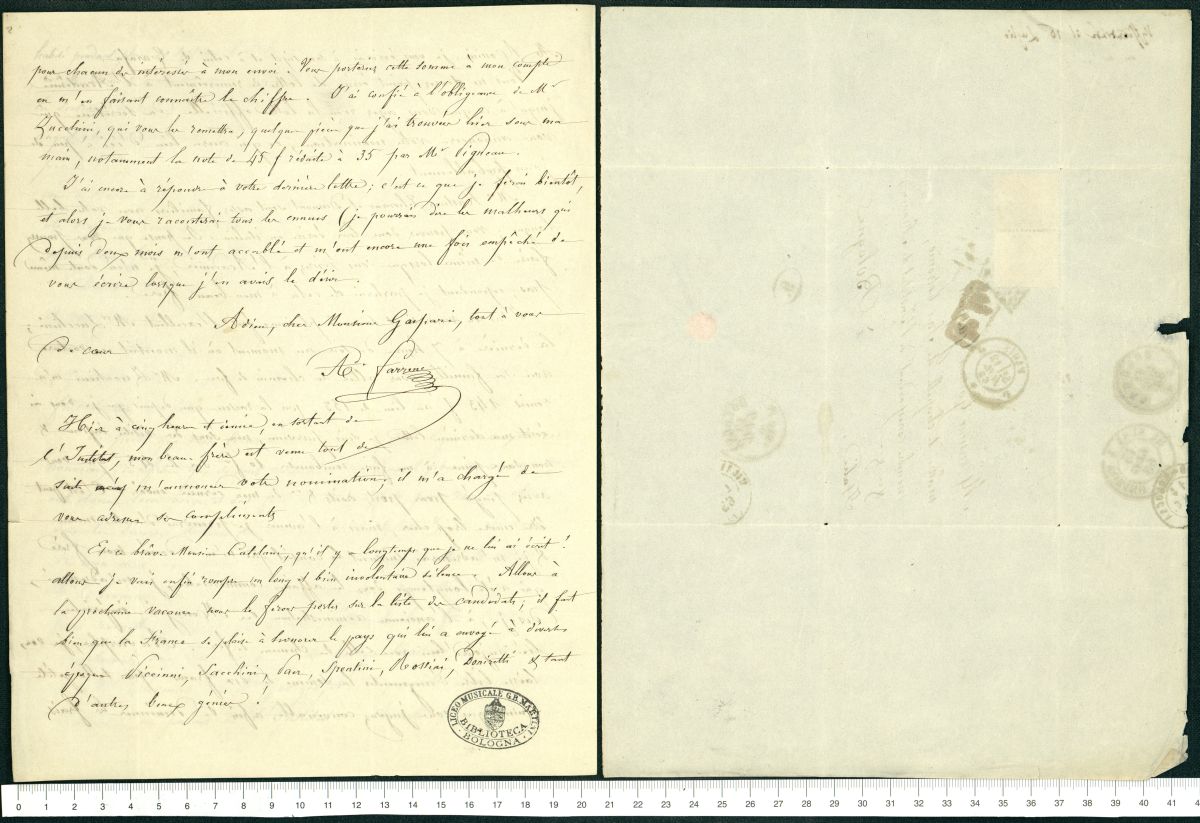 2
pour chacun des intéressés à mon envoi. Vous porteriez cette somme à mon compte
en m'en faisant connaître le chiffre. J'ai confié à l'obligeance de Mr
Zucchini, qui vous les remettra, quelques pièces que j'ai trouvées hier sous ma
main, notamment la note de 45 f réduite à 35 par Mr Vigneau.
J'ai encore à répondre à votre dernière lettre; c'est ce que je ferai bientôt,
et alors je vous raconterai tous les ennuis (je pourrais dire les malheurs qui
depuis deux mois m'ont accablé et m'ont encore une fois empêché de
vous écrire lorsque j'en avais le désir.
Adieu, cher Monsieur Gaspari, tout à vous
de cœur
Ae Farrenc
Hier à cinq heures et demie, en sortant de
l'Institut, mon beau frère est venu tout de
suite m'annoncer votre nomination; il m'a chargé de
vous adresser ses compliments
Et ce brave Monsieur Catelani, qu'il y a longtemps que je ne lui ai écrit!
allons je vais enfin rompre un long et bien involontaire silence. Allons à
la prochaine vacance nous le ferons porter sur la liste des candidats; il faut
bien que la France se plaise à honorer le pays qui lui a envoyé à diverses
époques Piccinni, Sacchini, Paer, Spontini, Rossini, Donizetti & tant
d'autres beaux génies!
LICEO MUSICALE G.B. MARTINI
BIBLIOTECA
BOLOGNA
0 1 2 3 4 5 6 7 8 9 10 11 12 13 14 15 16 17 18 19 20 21 22 23 24 25 26 27 28 29 30 31 32 33 34 35 36 37 38 39 40 41 4